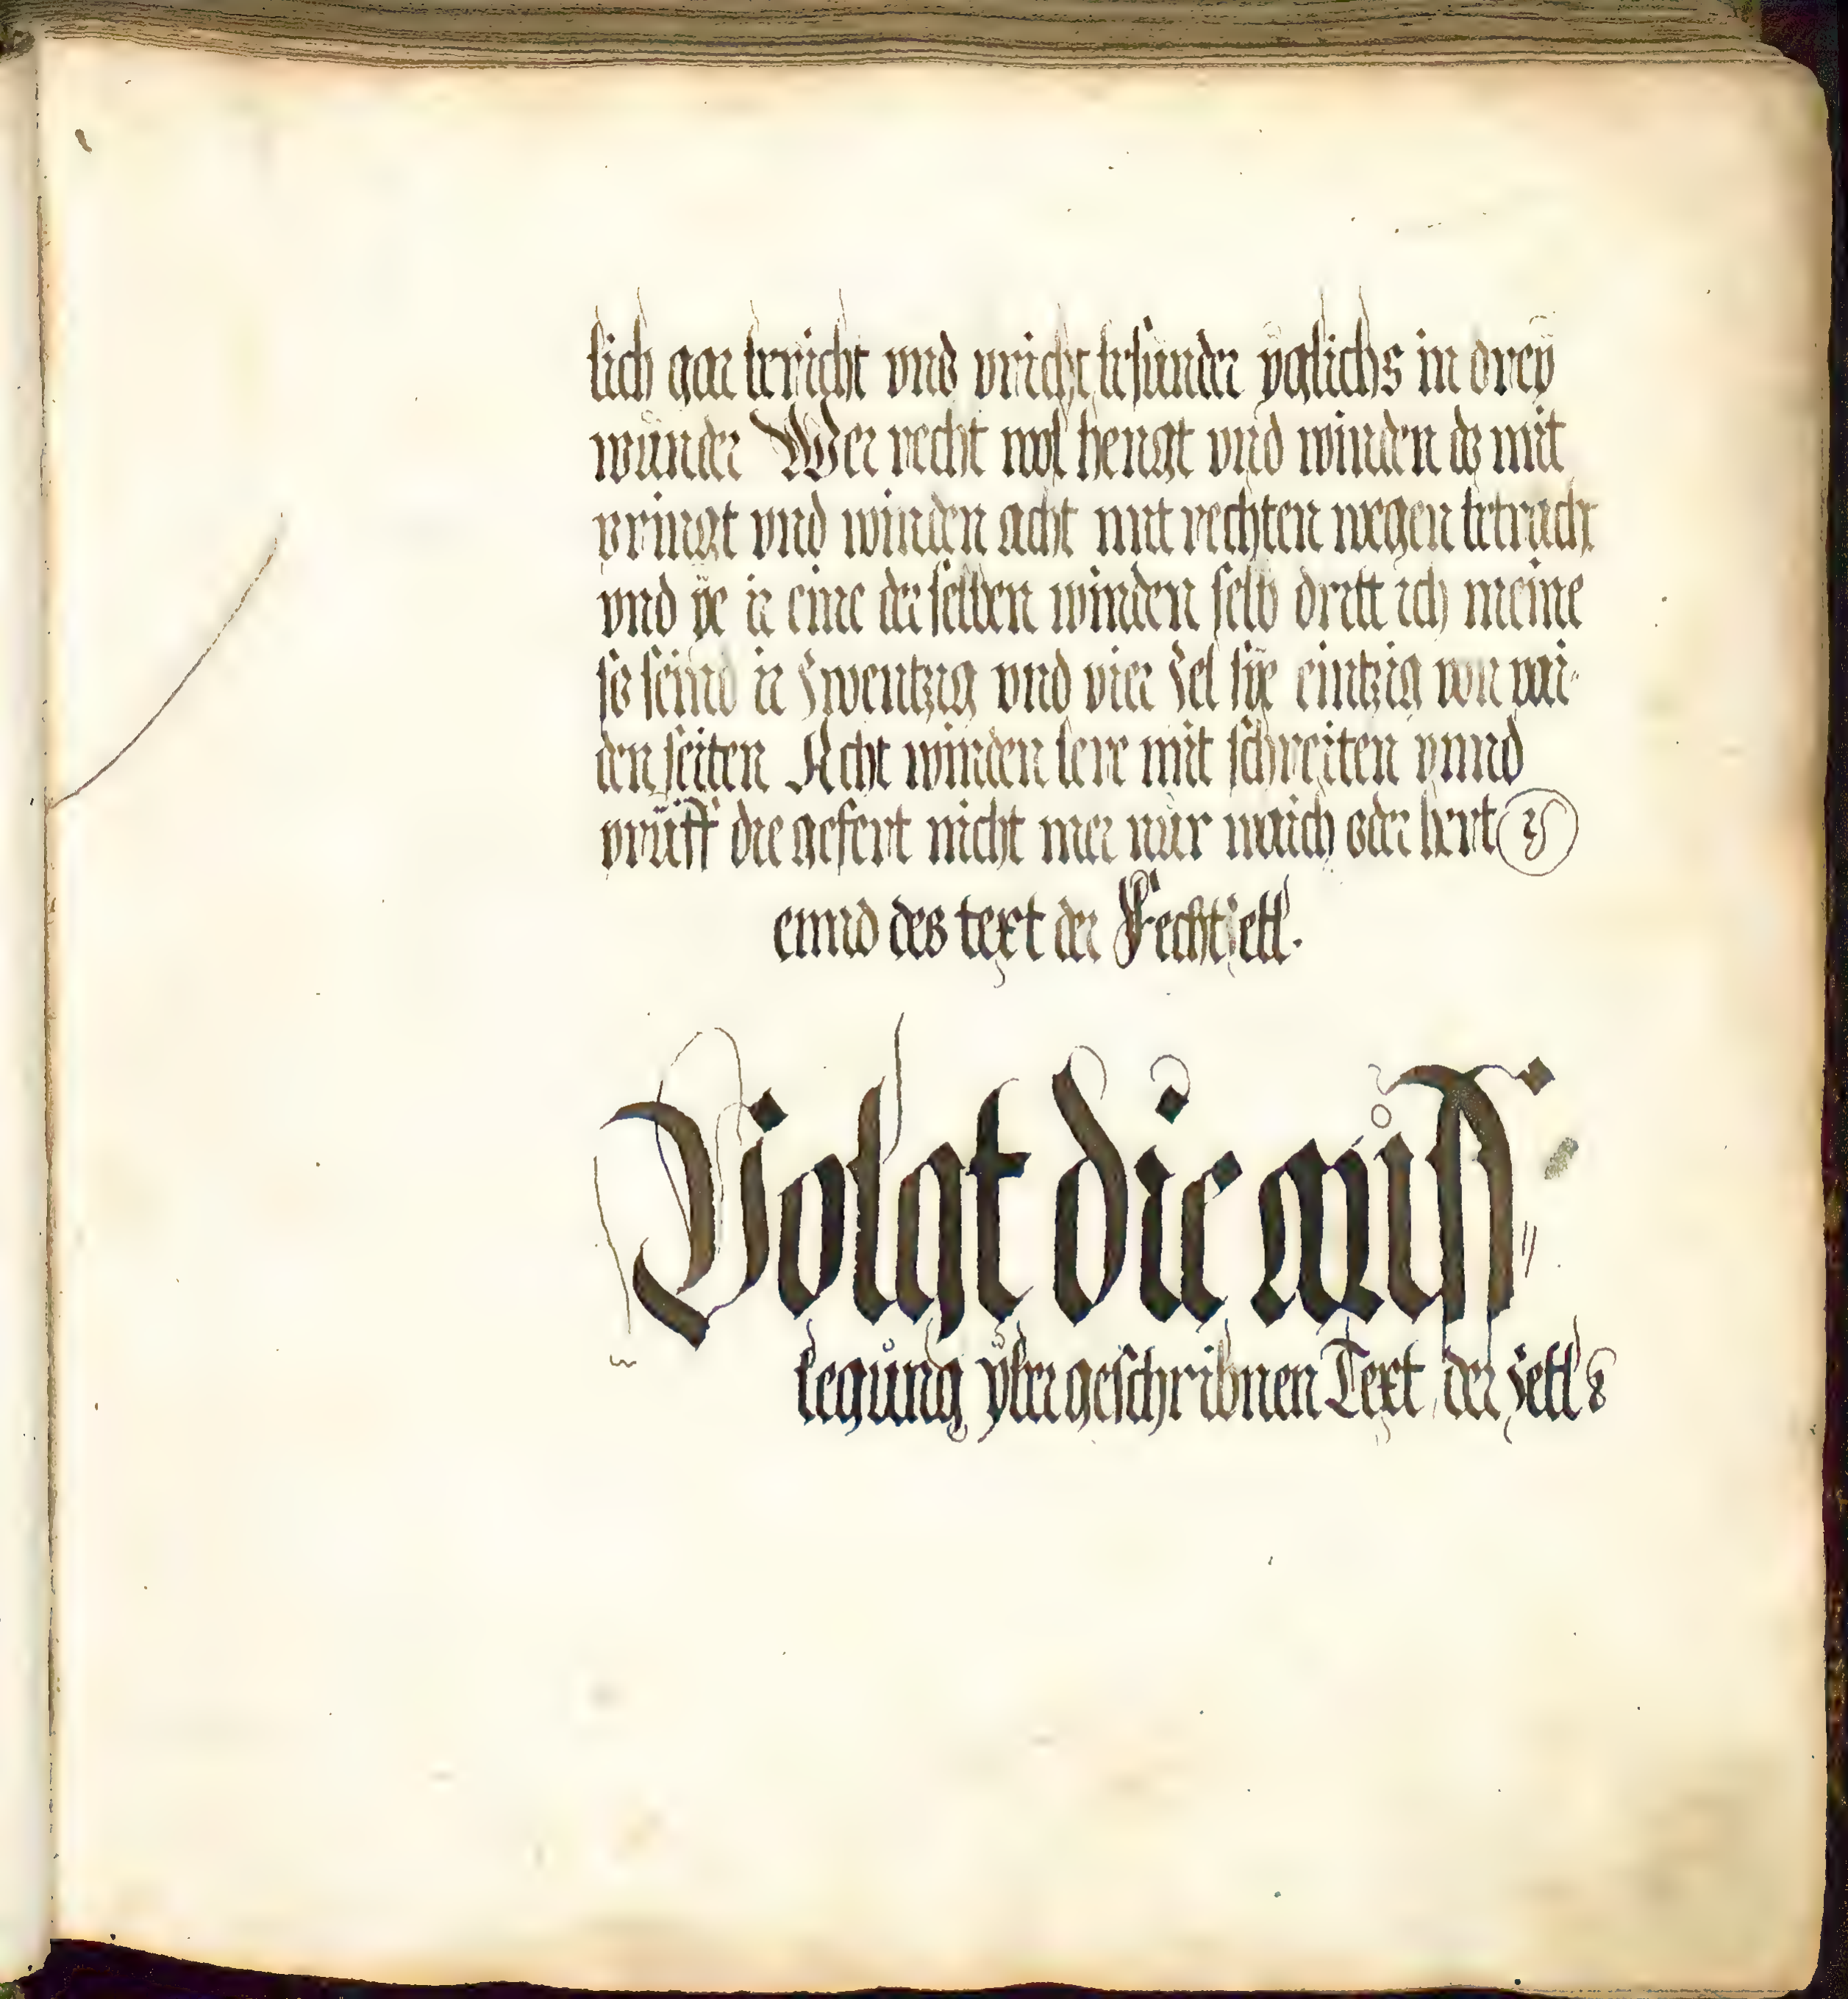 lich gar bericht vnd pricht besunder yglichs in drey
wunder Wer recht wol hengt vnd winden do mit
pringt vnd winden acht mit rechten wegen betracht
vnd ÿe ir eine der selben winden selb dritt ich meine
so seind ir zwentzig vnd vier zel sÿe eintzig von pai-
den seiten Acht winden lere mit schreiten vnnd
prüff die gefert nicht mer nür waich oder hert
ennd des text der Fechtzettl.
Volgt die auß
legung ÿbergeschribnen Text der zettl